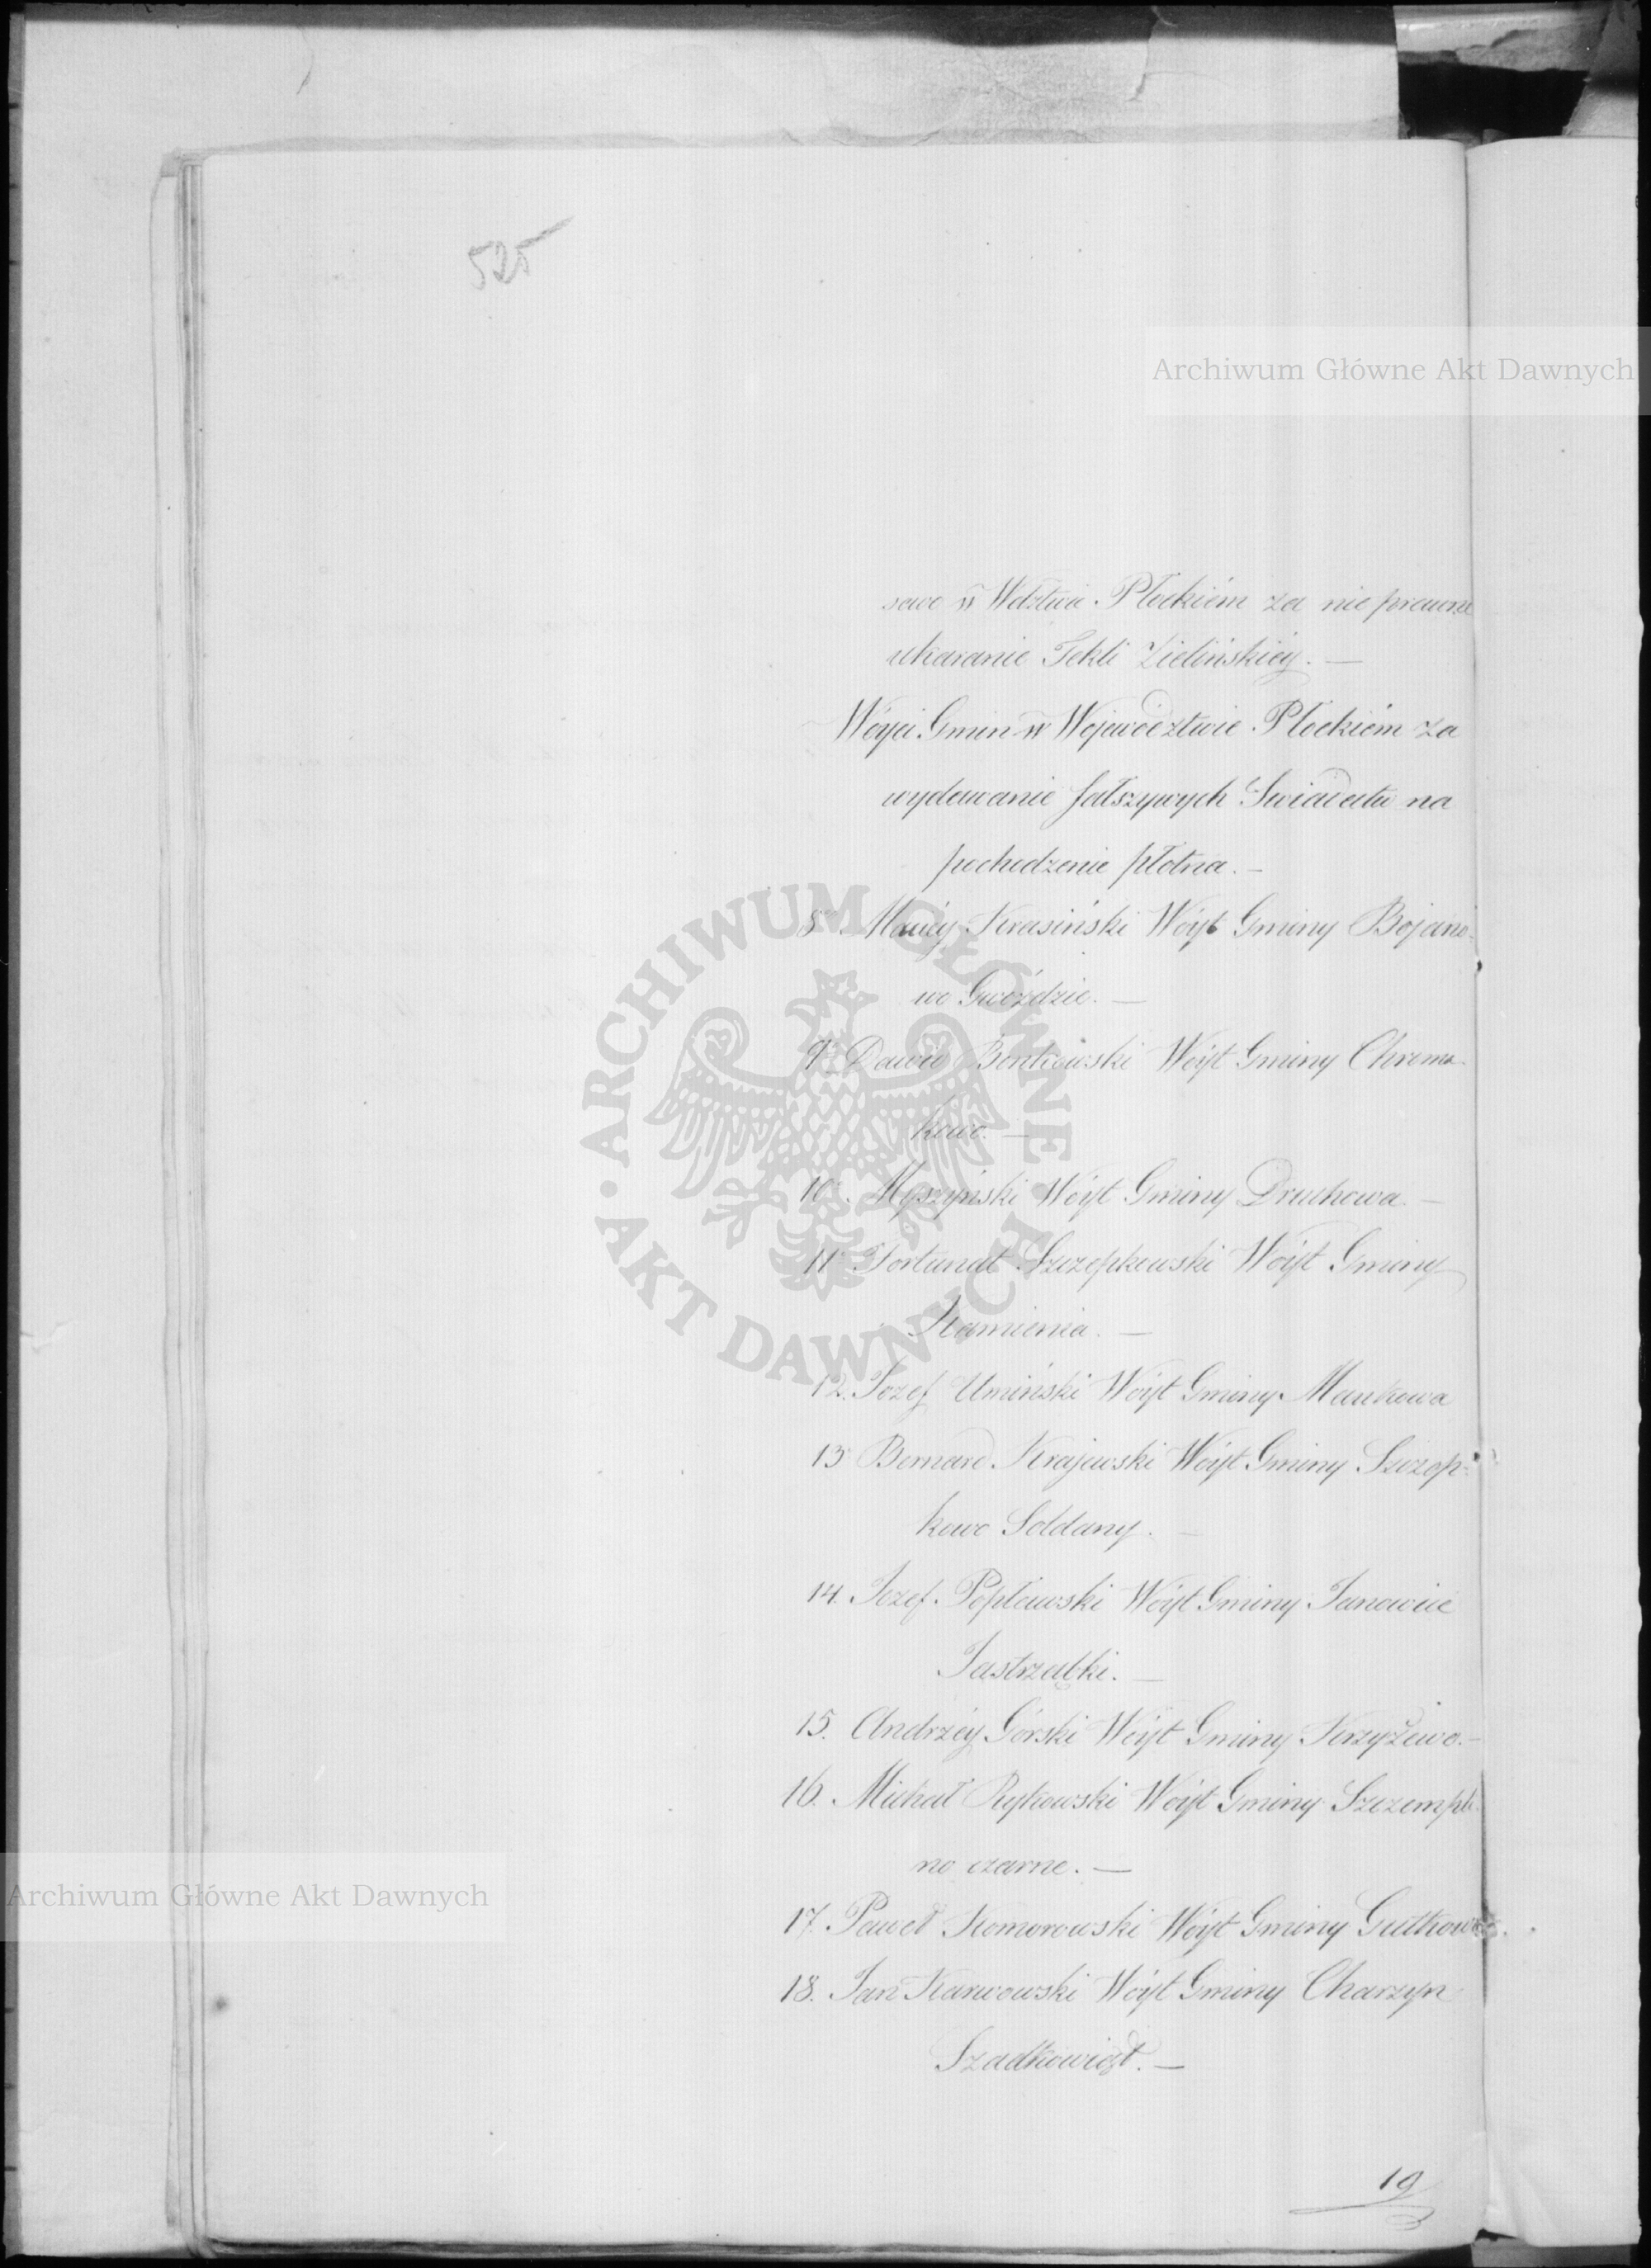 525
Archiwum Główne Akt Dawnych
sowo w Wdztwie Płockiém za nie prawne
ukaranie Tekli Zielińskiéy. —
Wóyci Gmin w Województwie Płockiém za
wydawanie fałszywych Swiadectw na
pochodzenie płótna. —
8 Maciéy Krasiński Wóyt Gminy Bojano-
wo Gwoździe. —
9 Dawid Bońkowski Wóyt Gminy Chrom-
kowo. —
10. Myszyński Wóyt Gminy Druchowa. —
11 Fortunat Szczepkowski Wóyt Gminy
Kamienia. —
12. Jozef Umiński Wóyt Gminy Mankowa
13 Bernard Krajewski Wóyt Gminy Szczep-
kowo Soldany. —
14. Jozef Popławski Wóyt Gminy Janowiec
Jastrząbki. —
15. Andrzéy Górski Wóyt Gminy Krzyżewo. —
16. Michał Rykowski Wóyt Gminy Szczempli-
no czarne. —
17. Paweł Komorowski Wóyt Gminy Gutkowo.
18. Jan Karwowski Wóyt Gminy Charzyn
19
ARCHIWUM GŁÓWNE · AKT DAWNYCH ·
Archiwum Główne Akt Dawnych